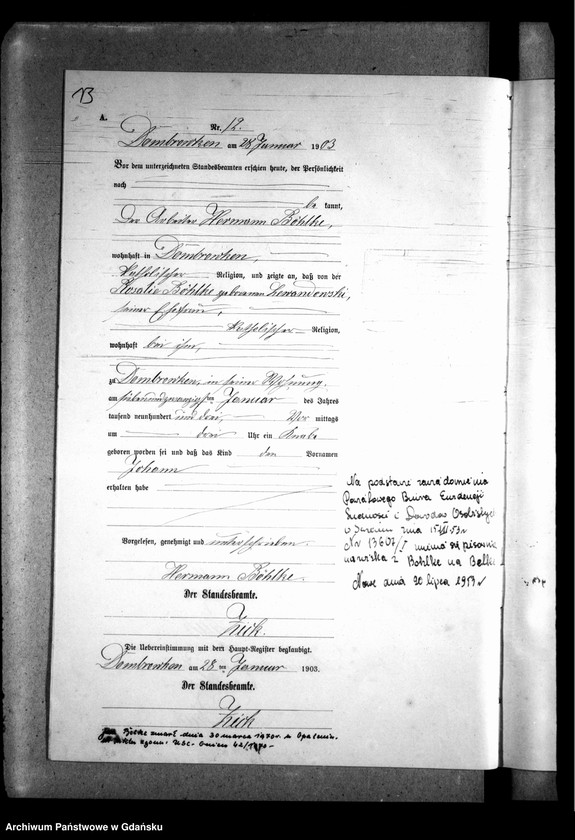 13
A.
Nr. 12.
Dombrowken am 28 Januar 1903
Vor dem unterzeichneten Standesbeamten erschien heute, der Persönlichkeit
nach
be kannt,
Der Arbeiter Hermann Böhlke,
wohnhaft in Dombrowken,
katholischer Religion, und zeigte an, daß von der
Rosalie Böhlke geborenen Lewandowski,
seiner Ehefrau,
katholischer Religion,
wohnhaft bei ihm,
zu Dombrowken, in seiner Wohnung,
am siebenundzwanzigsten Januar des Jahres
tausend neunhundert und drei, Vor mittags
um drei Uhr ein Knabe
geboren worden sei und daß das Kind den Vornamen
Johann
erhalten habe
Vorgelesen, genehmigt und unterschrieben.
Hermann Böhlke.
Der Standesbeamte.
Zick.
Die Uebereinstimmung mit dem Haupt-Register beglaubigt.
Dombrowken am 28 ten Januar 1903.
Der Standesbeamte.
Zick
zmarł dnia 30 marca 1970r. w Opaleniu.
zgonu USC. Gniew 42/1970
Na podstawie zawiadomienia
Powiatowego Biura Ewidencji
Ludności i Dowodów Osobistych
w dnia
Nr 13607/5 zmienia się pisownię
nazwiska z Bohlke na Belke
dnia 20 lipca 1953r
Archiwum Państwowe w Gdańsku